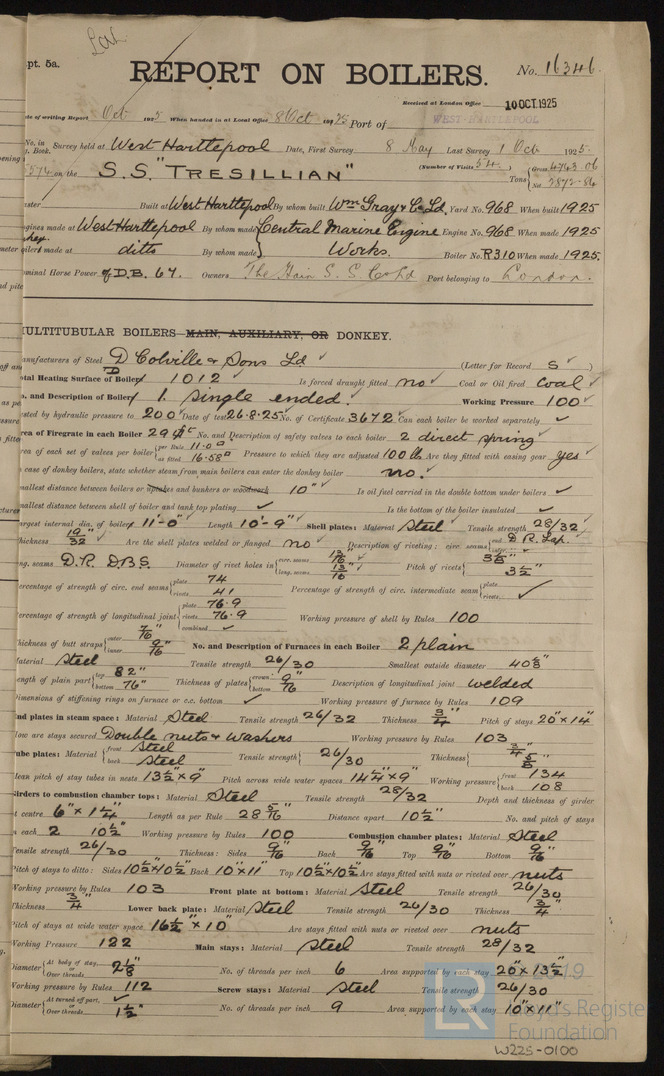 Lat
pt. 5a.
REPORT ON BOILERS.
No. 16346
Received at London Office 10 OCT. 1925
te of writing Report Oct 1925 When handed in at Local Office 8 Oct 1925 Port of WEST HARTLEPOOL
No. in Survey held at West Hartlepool Date, First Survey 8 May Last Survey 1 Oct 1925
. Book.
on the S.S. "TRESILLIAN" (Number of Visits 54) Tons { Gross 4743.06
Net 2872.86
aster Built at West Hartlepool By whom built Wm Gray & Co Ld. Yard No. 968 When built 1925
gines made at West Hartlepool By whom made Central Marine Engine Engine No. 968 When made 1925
oilers made at ditto By whom made Works. Boiler No. R310 When made 1925.
minal Horse Power of D.B. 67. Owners The Hain S. S. Co Ld Port belonging to London.
ULTITUBULAR BOILERS MAIN, AUXILIARY, OR DONKEY.
anufacturers of Steel D Colville & Sons Ld (Letter for Record S)
otal Heating Surface of Boiler 1012 Is forced draught fitted no Coal or Oil fired Coal
. and Description of Boiler 1 single ended. Working Pressure 100
sted by hydraulic pressure to 200 Date of test 26.8.25 No. of Certificate 3672 Can each boiler be worked separately ✓
rea of Firegrate in each Boiler No. and Description of safety valves to each boiler 2 direct spring
rea of each set of valves per boiler { per Rule 11.0
as fitted 16.58 Pressure to which they are adjusted 100 lb Are they fitted with easing gear yes
case of donkey boilers, state whether steam from main boilers can enter the donkey boiler no.
mallest distance between boilers or uptakes and bunkers or woodwork 10" Is oil fuel carried in the double bottom under boilers ✓
mallest distance between shell of boiler and tank top plating ✓ Is the bottom of the boiler insulated ✓
argest internal dia. of boiler 11'-0" Length 10'-9" Shell plates: Material Steel Tensile strength 28/32
hickness 19/32" Are the shell plates welded or flanged no Description of riveting: circ. seams { end D R. Lap.
inter. ✓
ng. seams D.R. DBS. Diameter of rivet holes in { circ. seams 13/16
long. seams 13/16" Pitch of rivets { 3 1/8"
3 1/2"
ercentage of strength of circ. end seams { plate 74
rivets 41 Percentage of strength of circ. intermediate seam { plate
rivets ✓
ercentage of strength of longitudinal joint { plate 76.9
rivets 76.9
combined ✓ Working pressure of shell by Rules 100
hickness of butt straps { outer 7/16"
inner 9/16 No. and Description of Furnaces in each Boiler 2 plain
aterial Steel Tensile strength 26/30 Smallest outside diameter 40 5/8"
ength of plain part { top 82"
bottom 76" Thickness of plates { crown 9/16"
bottom Description of longitudinal joint welded
imensions of stiffening rings on furnace or c.c. bottom ✓ Working pressure of furnace by Rules 109
nd plates in steam space: Material Steel Tensile strength 26/32 Thickness 3/4" Pitch of stays 20" x 14"
ow are stays secured Double nuts & Washers Working pressure by Rules 103
ube plates: Material { front Steel
back Steel Tensile strength { 26/30 Thickness { 3/4"
5/8"
ean pitch of stay tubes in nests 13 1/2" x 9" Pitch across wide water spaces 14 1/4" x 9" Working pressure { front 134
back 108
irders to combustion chamber tops: Material Steel Tensile strength 28/32 Depth and thickness of girder
t centre 6" x 1 1/4" Length as per Rule 28 5/16" Distance apart 10 1/2" No. and pitch of stays
n each 2 10 1/2" Working pressure by Rules 100 Combustion chamber plates: Material Steel
ensile strength 26/30 Thickness: Sides 9/16" Back 9/16" Top 9/16" Bottom 9/16"
itch of stays to ditto: Sides 10 1/2" x 10 1/2" Back 10" x 11" Top 10 1/2" x 10 1/2" Are stays fitted with nuts or riveted over nuts
orking pressure by Rules 103 Front plate at bottom: Material Steel Tensile strength 26/30
hickness 3/4" Lower back plate: Material Steel Tensile strength 26/30 Thickness 3/4"
itch of stays at wide water space 16 1/2" x 10" Are stays fitted with nuts or riveted over nuts
orking Pressure 122 Main stays: Material Steel Tensile strength 28/32
iameter { At body of stay,
Over threads 2 1/8" No. of threads per inch 6 Area supported by each stay 20" x 13 1/2"
orking pressure by Rules 112 Screw stays: Material Steel Tensile strength 26/30
iameter { At turned off part, ✓
Over threads 1 1/2" No. of threads per inch 9 Area supported by each stay 10" x 11"
LR
Lloyd's Register
Foundation
W225-0100